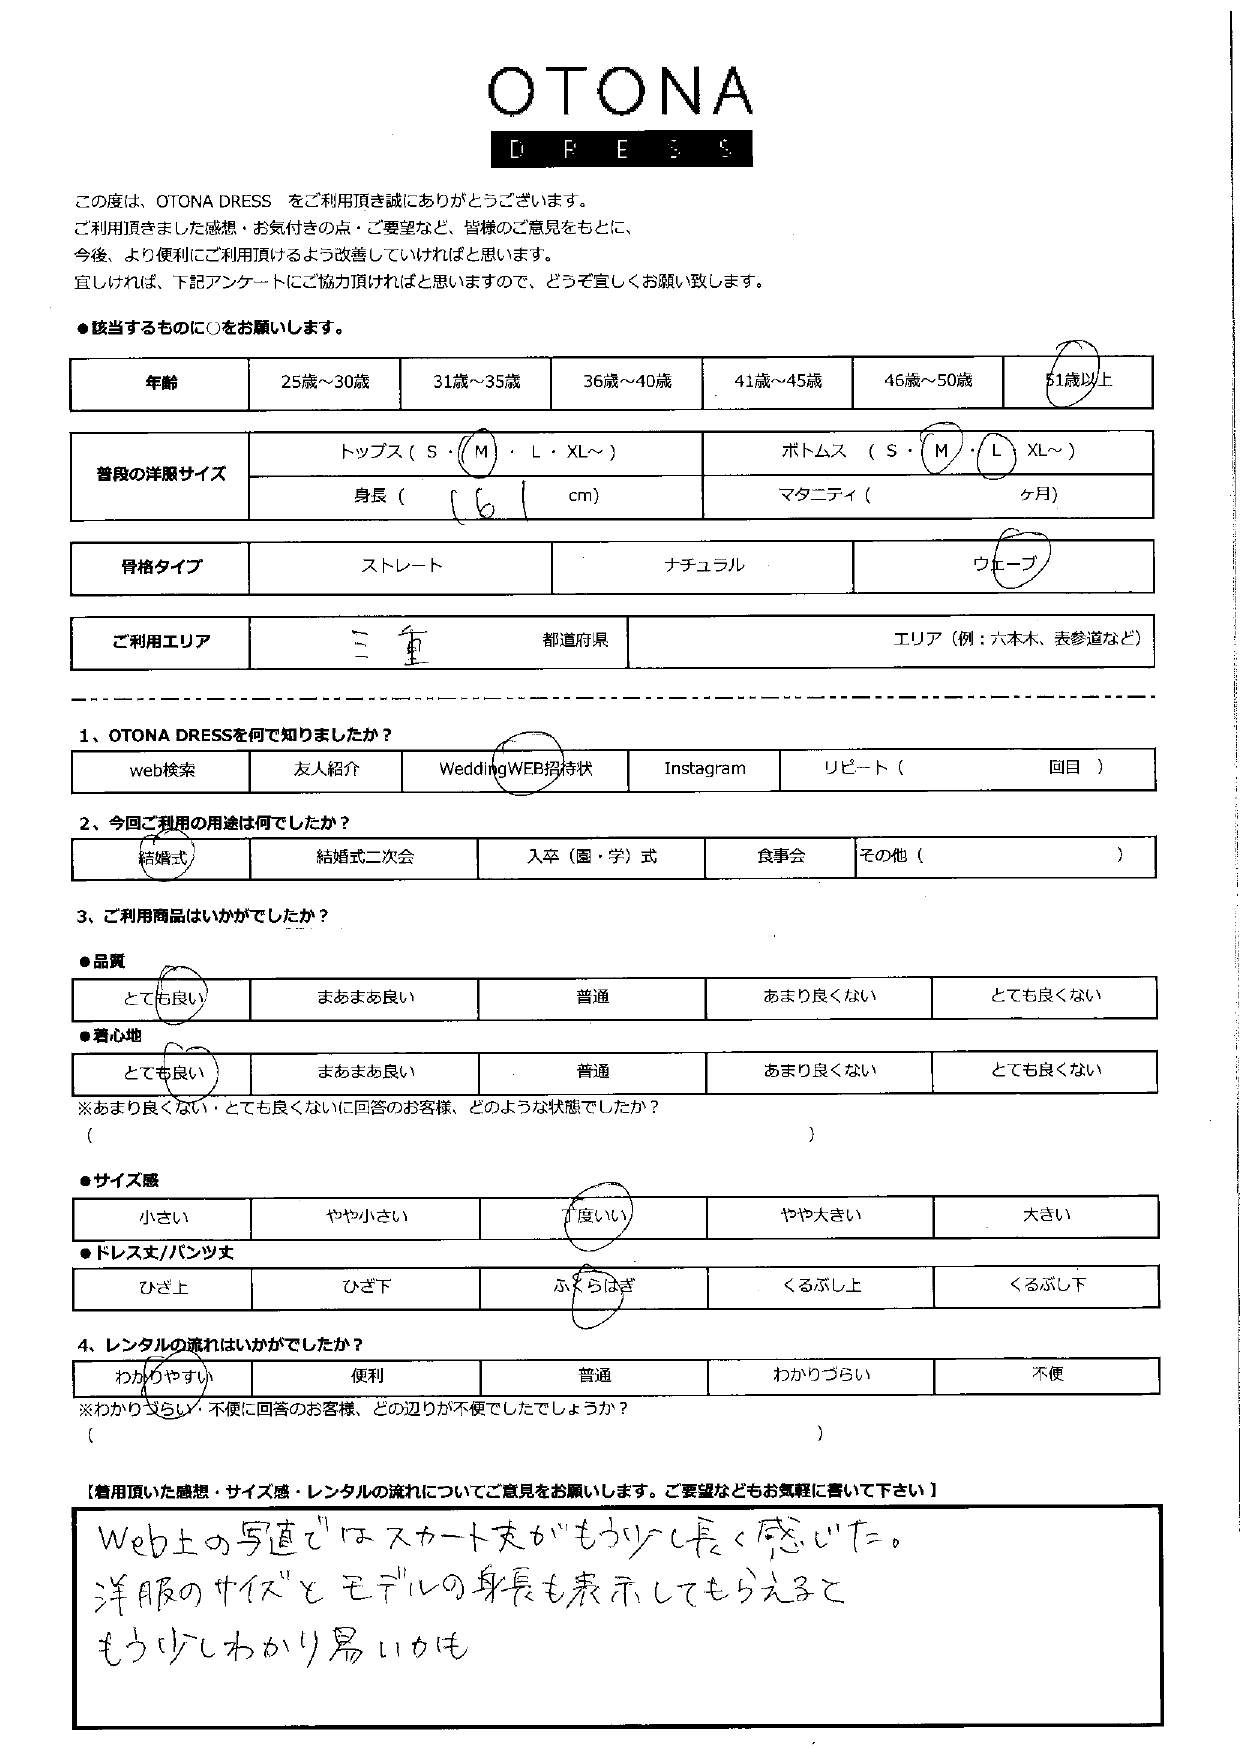 OTONA
DRESS
この度は、OTONA DRESS をご利用頂き誠にありがとうございます。
ご利用頂きました感想・お気付きの点・ご要望など、皆様のご意見をもとに、
今後、より便利にご利用頂けるよう改善していければと思います。
宜しければ、下記アンケートにご協力頂ければと思いますので、どうぞ宜しくお願い致します。
●該当するものに○をお願いします。
年齢 25歳～30歳 31歳～35歳 36歳～40歳 41歳～45歳 46歳～50歳 51歳以上
普段の洋服サイズ トップス ( S ・ M ・ L ・ XL～ ) ボトムス ( S ・ M ・ L XL～ )
身長 ( 161 cm) マタニティ ( ヶ月)
骨格タイプ ストレート ナチュラル ウェーブ
ご利用エリア 三重 都道府県 エリア（例：六本木、表参道など）
1、OTONA DRESSを何で知りましたか？
web検索 友人紹介 WeddingWEB招待状 Instagram リピート ( 回目 )
2、今回ご利用の用途は何でしたか？
結婚式 結婚式二次会 入卒（園・学）式 食事会 その他 ( )
3、ご利用商品はいかがでしたか？
●品質
とても良い まあまあ良い 普通 あまり良くない とても良くない
●着心地
とても良い まあまあ良い 普通 あまり良くない とても良くない
※あまり良くない・とても良くないに回答のお客様、どのような状態でしたか？
( )
●サイズ感
小さい やや小さい 丁度いい やや大きい 大きい
●ドレス丈/パンツ丈
ひざ上 ひざ下 ふくらはぎ くるぶし上 くるぶし下
4、レンタルの流れはいかがでしたか？
わかりやすい 便利 普通 わかりづらい 不便
※わかりづらい・不便に回答のお客様、どの辺りが不便でしたでしょうか？
( )
【着用頂いた感想・サイズ感・レンタルの流れについてご意見をお願いします。ご要望などもお気軽に書いて下さい】
Web上の写真ではスカート丈がもう少し長く感じた。
洋服のサイズとモデルの身長も表示してもらえると
もう少しわかり易いかも